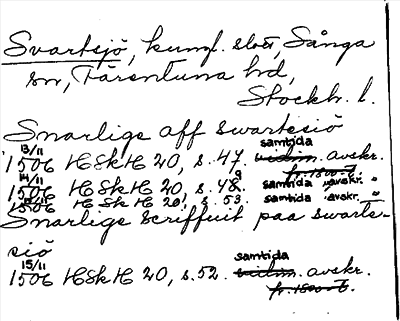 Svartsjö, kungl. slott, Sånga
sn, Färentuna hd,
Stockh. l.
Snarlige aff swartesiö
13/11 1506 HSkH 20, s. 47. samtida vidim. avskr. fr. 1500-t.
14/11 1506 HSkH 20, s. 48. samtida avskr.
1506 HSkH 20, s. 53. samtida avskr.
Snarlige scriffuit paa swarte-
siö
15/11 1506 HSkH 20, s. 52. samtida vidim. avskr.
fr. 1500-t.